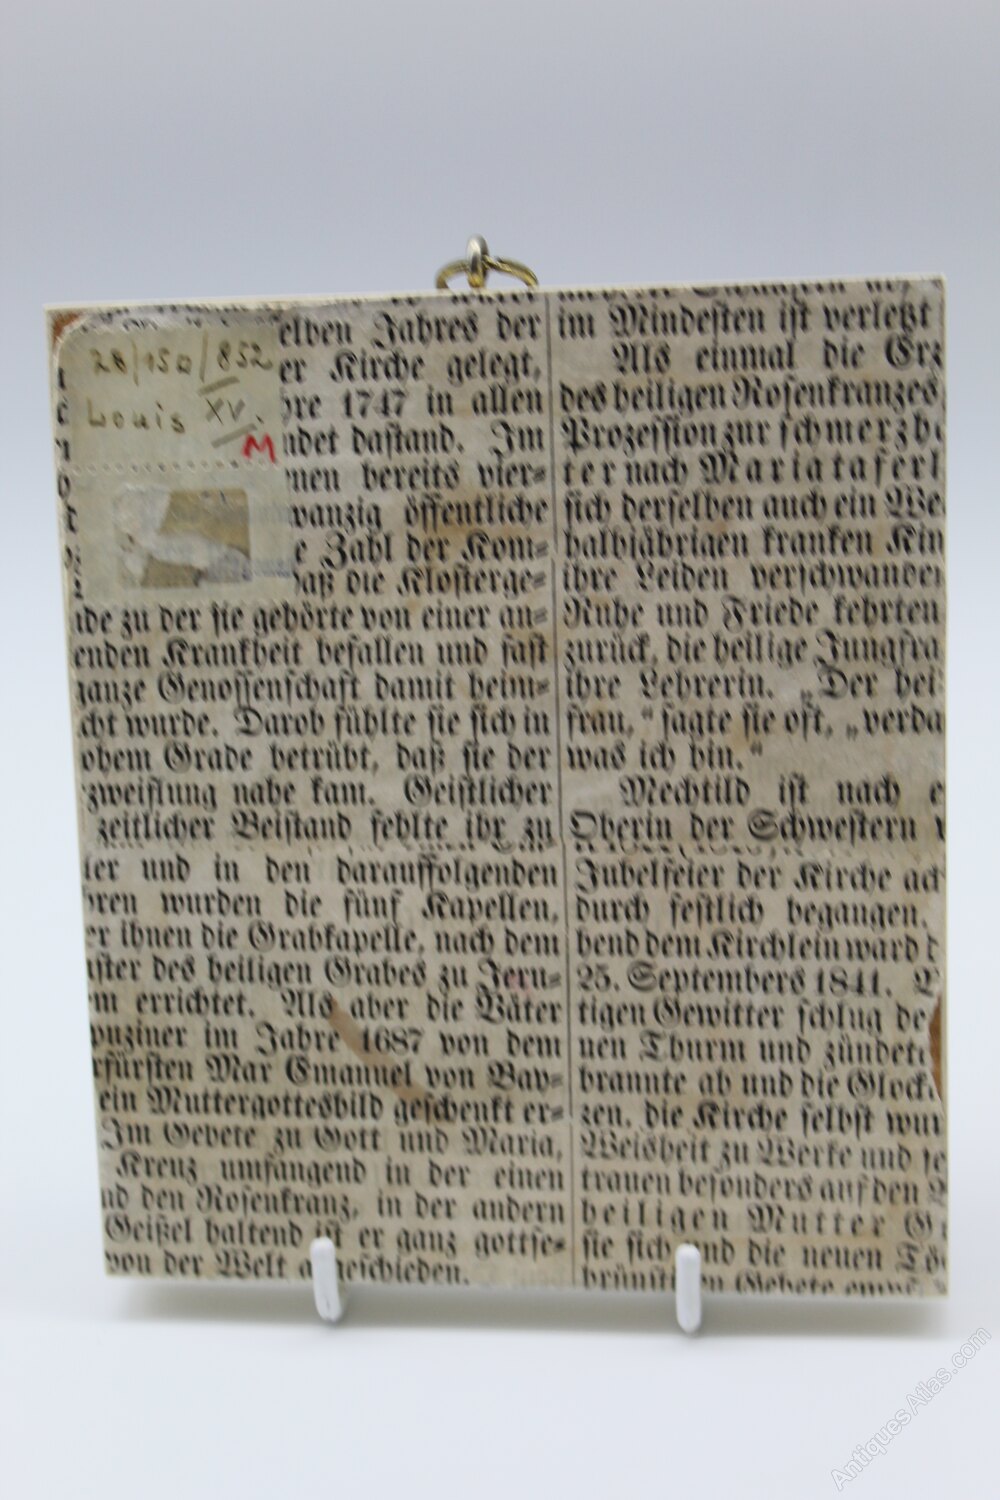 28/150/852
Louis XV.
M
elben Jahres der
er Kirche gelegt,
hre 1747 in allen
ndet dastand. Im
nen bereits vier=
wanzig öffentliche
e Zahl der Kom=
daß die Klosterge=
nde zu der sie gehörte von einer an=
enden Krankheit befallen und fast
ganze Genossenschaft damit heim=
cht wurde. Darob fühlte sie sich in
ohem Grade betrübt, daß sie der
zweiflung nahe kam. Geistlicher
zeitlicher Beistand fehlte ihr zu
ter und in den darauffolgenden
hren wurden die fünf Kapellen,
er ihnen die Grabkapelle, nach dem
uster des heiligen Grabes zu Jeru=
em errichtet. Als aber die Väter
puziner im Jahre 1687 von dem
rfürsten Max Emanuel von Bay=
ein Muttergottesbild geschenkt er=
Im Gebete zu Gott und Maria,
Kreuz umfangend in der einen
nd den Rosenkranz, in der andern
Geißel haltend ist er ganz gottse=
von der Welt abgeschieden.
im Mindesten ist verletzt
Als einmal die Erz
des heiligen Rosenkranzes
Prozession zur schmerzh
ter nach Mariataferl
sich derselben auch ein We
halbjährigen kranken Kin
ihre Leiden verschwanden
Ruhe und Friede kehrten
zurück, die heilige Jungfra
ihre Lehrerin. „Der hei
frau," sagte sie oft, „verda
was ich bin."
Mechtild ist nach e
Oberin der Schwestern
Jubelfeier der Kirche ach
durch festlich begangen.
bend dem Kirchlein ward
25. Septembers 1841.
tigen Gewitter schlug de
nen Thurm und zündete
brannte ab und die Glock
zen, die Kirche selbst wur
Weisheit zu Werke und se
trauen besonders auf den
heiligen Mutter G
sie sich und die neuen Tö
brünstigen Gebete
AntiquesAtlas.com